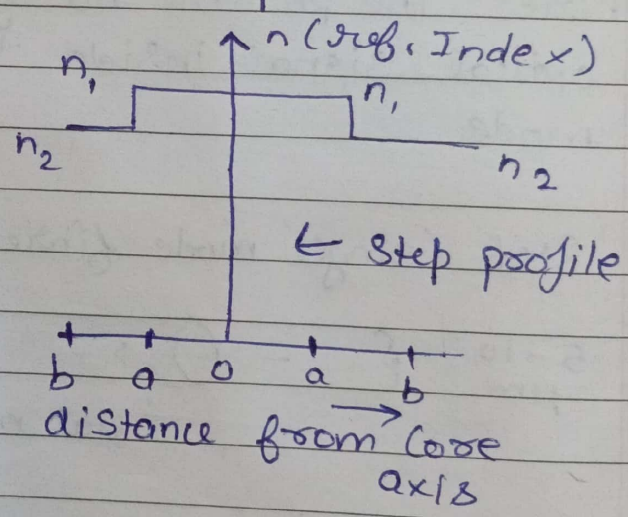 n (ref. Index)
n₁
n₁
n₂
n₂
← Step profile
b a 0 a b
distance from Core
axis